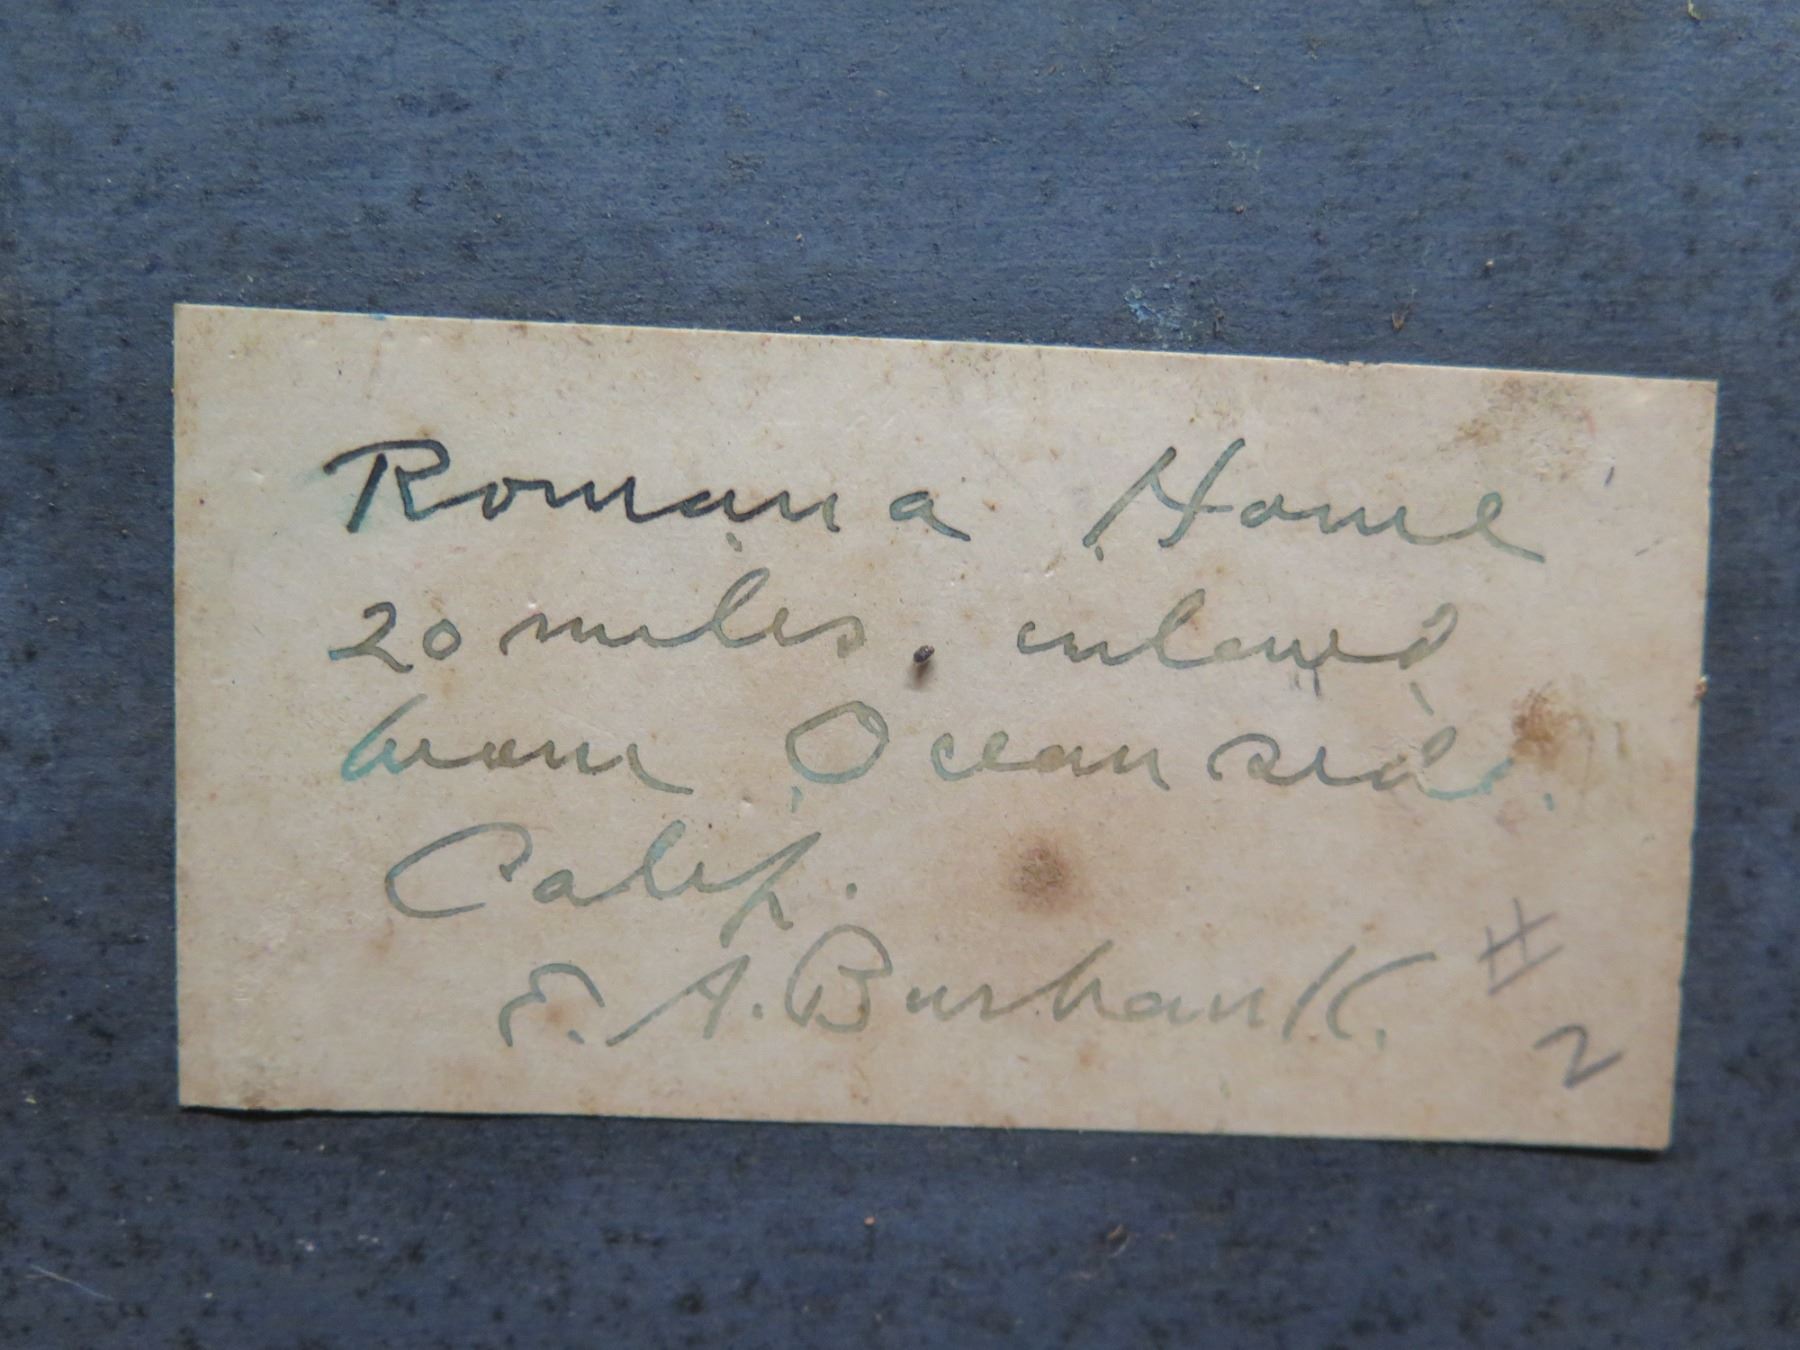 Romana Home
20 miles. inland
from Oceanside.
Calif.
E. A. Burbank.
#
2